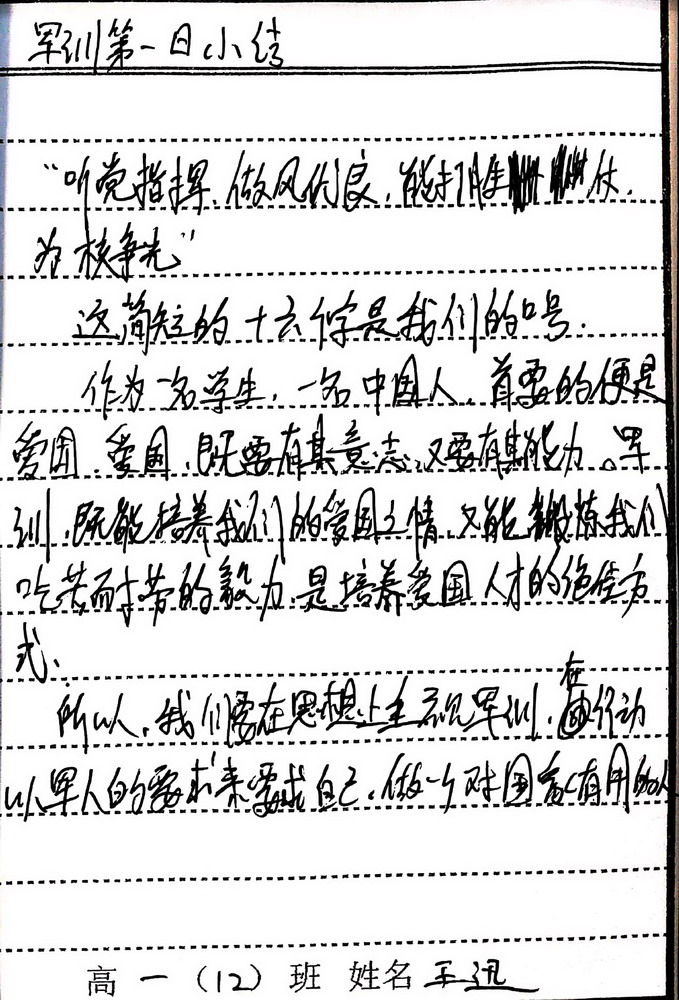 军训第一日小结
“听党指挥，做风优良，能打胜仗，
为核争先”
这简短的十六个字是我们的口号．
作为一名学生，一名中国人，首要的便是
爱国．爱国，既要有其意志，又要有其能力。军
训，既能培养我们的爱国之情，又能锻炼我们
吃苦而才劳的毅力，是培养爱国人才的绝佳方
式．
所以，我们要在思想上重视军训，在行动
以军人的要求来要求自己，做一个对国家有用的人
高一（12）班 姓名 王迅